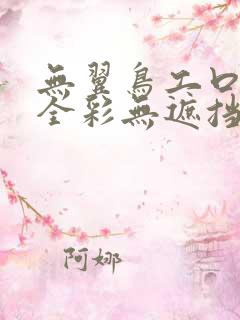 無翼鳥工口
全彩無遮挡
阿娜